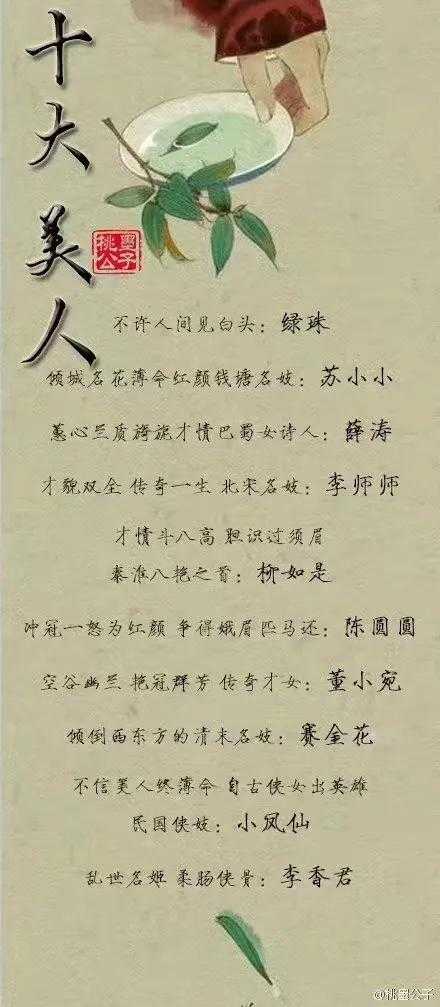 十大美人
桃墨
公子
不许人间见白头：绿珠
倾城名花薄命红颜钱塘名妓：苏小小
蕙心兰质旖旎才情巴蜀女诗人：薛涛
才貌双全 传奇一生 北宋名妓：李师师
才情斗八高 胆识过须眉
秦淮八艳之首：柳如是
冲冠一怒为红颜 争得娥眉匹马还：陈圆圆
空谷幽兰 艳冠群芳 传奇才女：董小宛
倾倒西东方的清末名妓：赛金花
不信美人终薄命 自古侠女出英雄
民国侠妓：小凤仙
乱世名姬 柔肠侠骨：李香君
@桃墨公子